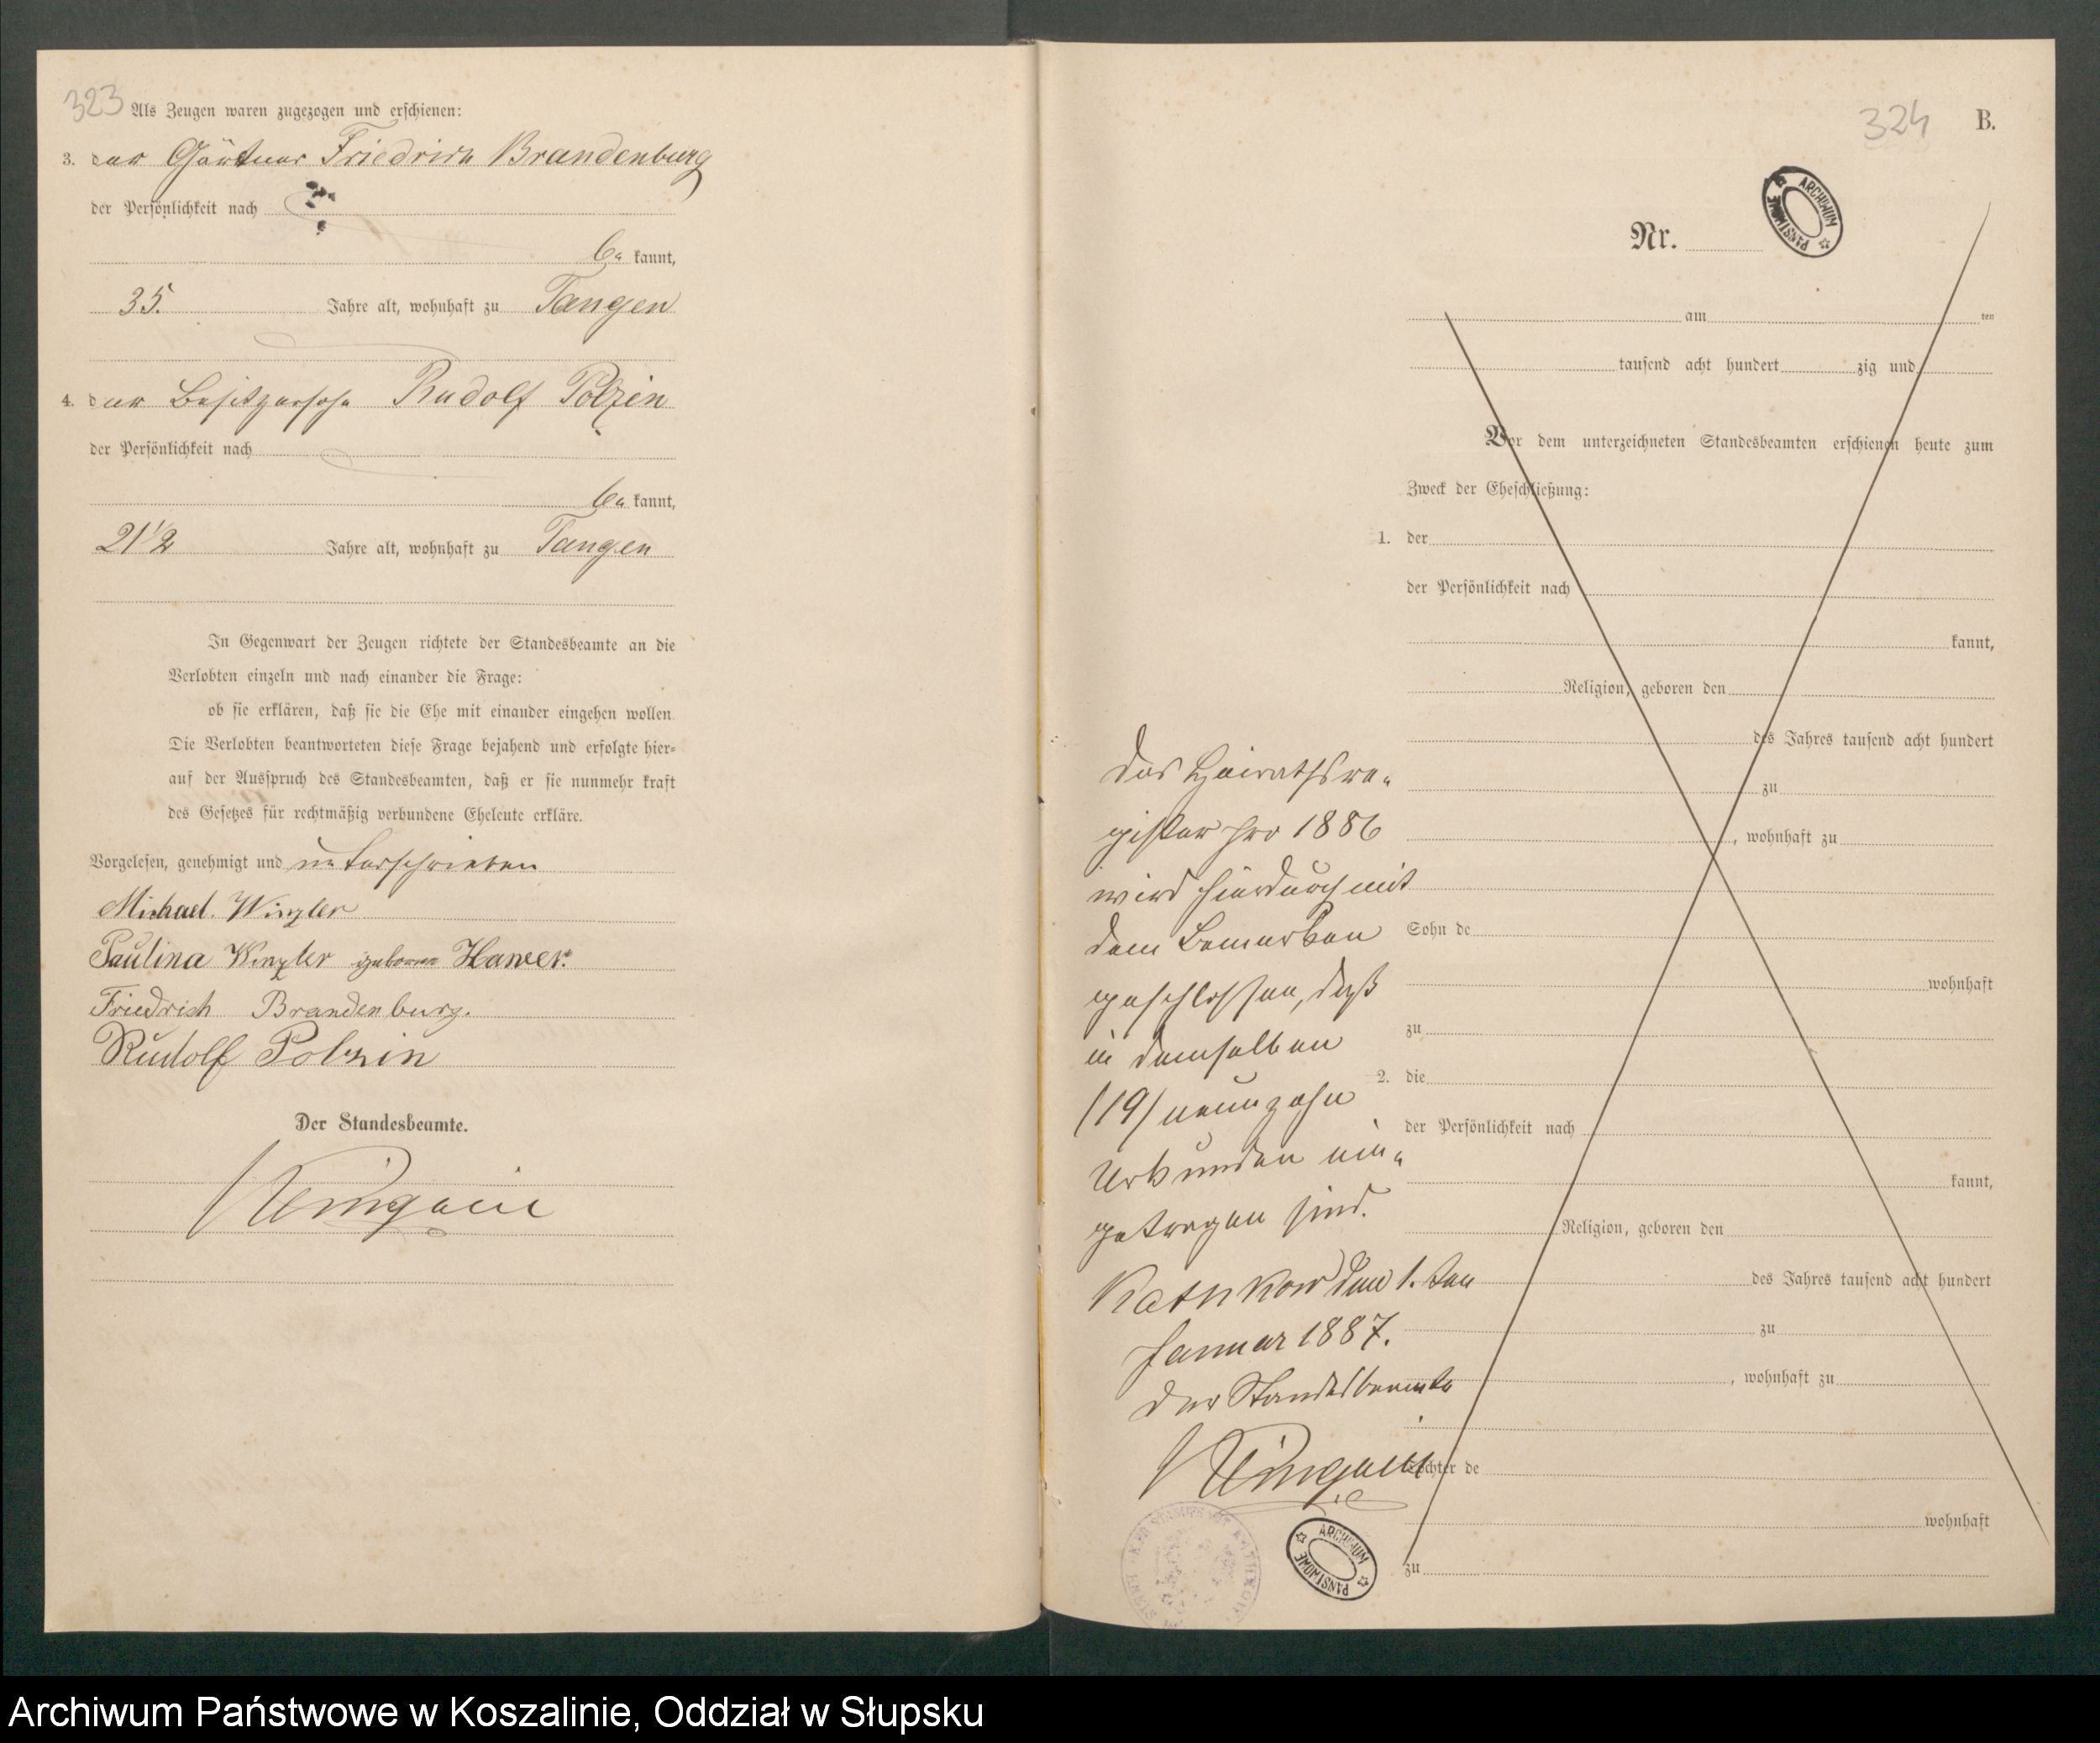 323 Als Zeugen waren zugezogen und erschienen:
3. der Gärtner Friedrich Brandenburg
der Persönlichkeit nach
be kannt,
35. Jahre alt, wohnhaft zu Tangen
4. der Besitzersohn Rudolf Polzin
der Persönlichkeit nach
be kannt,
21 1/2 Jahre alt, wohnhaft zu Tangen
In Gegenwart der Zeugen richtete der Standesbeamte an die
Verlobten einzeln und nach einander die Frage:
ob sie erklären, daß sie die Ehe mit einander eingehen wollen
Die Verlobten beantworteten diese Frage bejahend und erfolgte hier=
auf der Ausspruch des Standesbeamten, daß er sie nunmehr kraft
des Gesetzes für rechtmäßig verbundene Eheleute erkläre.
Vorgelesen, genehmigt und unterschrieben
Michael Winzler
Paulina Winzler geborne
Friedrich Brandenburg.
Rudolf Polzin
Der Standesbeamte.
324 B.
Nr.
ARCHIWUM PAŃSTWOWE
am ten
tausend acht hundert zig und
Vor dem unterzeichneten Standesbeamten erschienen heute zum
Zweck der Eheschließung:
1. der
der Persönlichkeit nach
kannt,
Religion, geboren den
des Jahres tausend acht hundert
zu
, wohnhaft zu
Sohn de
wohnhaft
zu
2. die
der Persönlichkeit nach
kannt,
Religion, geboren den
des Jahres tausend acht hundert
zu
, wohnhaft zu
Tochter de
wohnhaft
zu
Das Heirathsre=
gister pro 1886
wird hierdurch mit
dem Bemerken
geschlossen, daß
in demselben
/19/ neunzehn
Urkunden ein=
getragen sind.
Kathkow den 1. ten
Januar 1887.
Der Standesbeamte
ARCHIWUM PAŃSTWOWE
Archiwum Państwowe w Koszalinie, Oddział w Słupsku